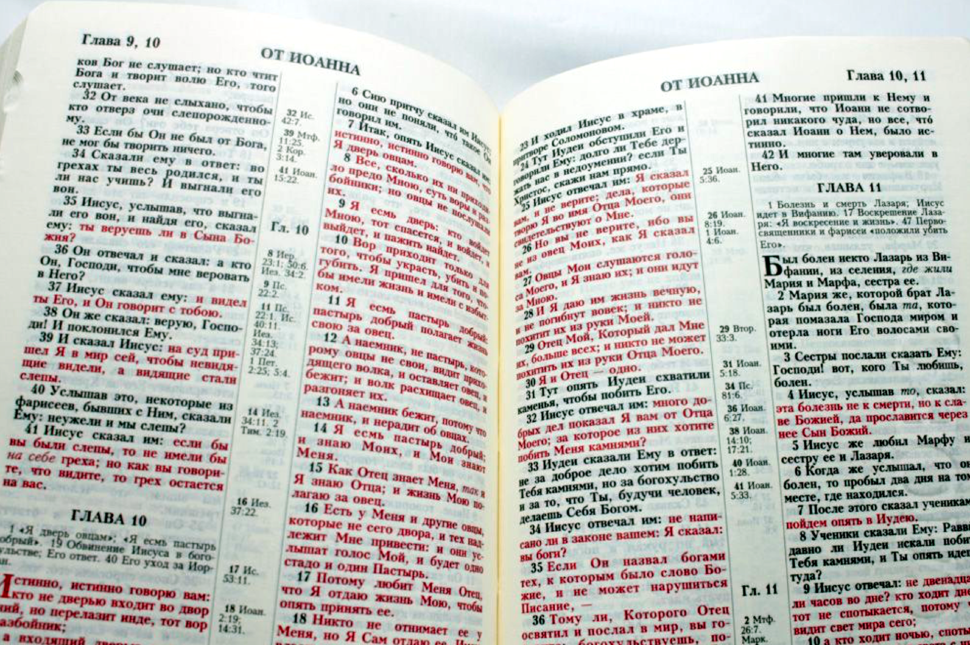 Глава 9, 10
ОТ ИОАННА
ков Бог не слушает; но кто чтит
Бога и творит волю Его, того
слушает.
32 От века не слыхано, чтобы
кто отверз очи слепорожденно-
му.
33 Если бы Он не был от Бога,
не мог бы творить ничего.
34 Сказали ему в ответ: во
грехах ты весь родился, и ты
ли нас учишь? И выгнали его
вон.
35 Иисус, услышав, что выгна-
ли его вон, и найдя его, сказал
ему: ты веруешь ли в Сына Бо-
жия?
36 Он отвечал и сказал: а кто
Он, Господи, чтобы мне веровать
в Него?
37 Иисус сказал ему: и видел
ты Его, и Он говорит с тобою.
38 Он же сказал: верую, Госпо-
ди! И поклонился Ему.
39 И сказал Иисус: на суд при-
шел Я в мир сей, чтобы невидя-
щие видели, а видящие стали
слепы.
40 Услышав это, некоторые из
фарисеев, бывших с Ним, сказали
Ему: неужели и мы слепы?
41 Иисус сказал им: если бы
вы были слепы, то не имели бы
на себе греха; но как вы говори-
те, что видите, то грех остается
на вас.
ГЛАВА 10
1 «Я дверь овцам»; «Я есмь пастырь
добрый». 19 Обвинение Иисуса в бого-
хульстве; Его ответ. 40 Его уход за Иор-
Истинно, истинно говорю вам:
кто не дверью входит во двор
ний, но перелазит инде, тот вор
разбойник;
а входящий дверью
32 Ис.
42:7.
39 Мтф.
11:25.
2 Кор.
3:14.
41 Иоан.
15:22.
Гл. 10
8 Иер.
23:1; 50:6.
Иез. 34:2.
9 Пс.
22:2.
11 Пс.
22:1. Ис.
40:11.
Иез.
34:13;
37:24.
1 Пет.
2:25; 5:4.
14 Иез.
34:11. 2
Тим. 2:19.
16 Иез.
37:22.
17 Ис.
53:11.
18 Иоан.
2:19;
14:31.
6 Сию притчу сказал им Иисус;
но они не поняли, что такое Он
говорил им.
7 Итак, опять Иисус сказал им:
истинно, истинно говорю вам, что
Я дверь овцам.
8 Все, сколько их ни приходило
предо Мною, суть воры и раз-
бойники; но овцы не послушали
их.
9 Я есмь дверь: кто войдет
Мною, тот спасется, и войдет, и
выйдет, и пажить найдет.
10 Вор приходит только для
того, чтобы украсть, убить и по-
губить. Я пришел для того, чтобы
имели жизнь и имели с избыт-
ком.
11 Я есмь пастырь добрый:
пастырь добрый полагает жизнь
свою за овец.
12 А наемник, не пастырь, кото-
рому овцы не свои, видит прихо-
дящего волка, и оставляет овец, и
бежит; и волк расхищает овец, и
разгоняет их.
13 А наемник бежит, потому что
наемник, и нерадит об овцах.
14 Я есмь пастырь добрый;
и знаю Моих, и Мои знают
Меня.
15 Как Отец знает Меня, так и
Я знаю Отца; и жизнь Мою по-
лагаю за овец.
16 Есть у Меня и другие овцы,
которые не сего двора, и тех над-
лежит Мне привести: и они ус-
лышат голос Мой, и будет одно
стадо и один Пастырь.
17 Потому любит Меня Отец,
что Я отдаю жизнь Мою, чтобы
опять принять ее.
18 Никто не отнимает ее у
Меня, но Я Сам отдаю ее.
ОТ ИОАННА
Глава 10, 11
23 И ходил Иисус в храме, в
притворе Соломоновом.
24 Тут Иудеи обступили Его и
говорили Ему: долго ли Тебе дер-
жать нас в недоумении? если Ты
Христос, скажи нам прямо.
25 Иисус отвечал им: Я сказал
вам, и не верите; дела, которые
творю Я во имя Отца Моего, они
свидетельствуют о Мне.
26 Но вы не верите, ибо вы
не из овец Моих, как Я сказал
вам.
27 Овцы Мои слушаются голо-
са Моего, и Я знаю их; и они идут
за Мною.
28 И Я даю им жизнь вечную,
и не погибнут вовек; и никто не
похитит их из руки Моей.
29 Отец Мой, Который дал Мне
их, больше всех; и никто не может
похитить их из руки Отца Моего.
30 Я и Отец — одно.
31 Тут опять Иудеи схватили
каменья, чтобы побить Его.
32 Иисус отвечал им: много до-
брых дел показал Я вам от Отца
Моего; за которое из них хотите
побить Меня камнями?
33 Иудеи сказали Ему в ответ:
не за доброе дело хотим побить
Тебя камнями, но за богохульство
и за то, что Ты, будучи человек,
делаешь Себя Богом.
34 Иисус отвечал им: не напи-
сано ли в законе вашем: Я сказал:
вы боги?
35 Если Он назвал богами
тех, к которым было слово Бо-
жие, и не может нарушиться
Писание, —
36 Тому ли, Которого Отец
освятил и послал в мир, вы го-
ворите: богохульствуешь, по-
25 Иоан.
5:36.
26 Иоан.
8:19.
1 Иоан.
4:6.
29 Втор.
33:3.
31 Иоан.
5:18.
34 Пс.
81:6.
36 Иоан.
6:27.
38 Иоан.
14:10;
17:21.
40 Иоан.
1:28.
41 Иоан.
5:33.
Гл. 11
2 Мтф.
26:7.
Марк.
41 Многие пришли к Нему и
говорили, что Иоанн не сотво-
рил никакого чуда, но все, что́
сказал Иоанн о Нем, было ис-
тинно.
42 И многие там уверовали в
Него.
ГЛАВА 11
1 Болезнь и смерть Лазаря; Иисус
идет в Вифанию. 17 Воскресение Лаза-
ря: «Я воскресение и жизнь». 47 Перво-
священники и фарисеи «положили убить
Его».
Был болен некто Лазарь из Ви-
фании, из селения, где жили
Мария и Марфа, сестра ее.
2 Мария же, которой брат Ла-
зарь был болен, была та, кото-
рая помазала Господа миром и
отерла ноги Его волосами свои-
ми.
3 Сестры послали сказать Ему:
Господи! вот, кого Ты любишь,
болен.
4 Иисус, услышав то, сказал:
эта болезнь не к смерти, но к сла-
ве Божией, да прославится через
нее Сын Божий.
5 Иисус же любил Марфу и
сестру ее и Лазаря.
6 Когда же услышал, что он
болен, то пробыл два дня на том
месте, где находился.
7 После этого сказал ученикам:
пойдем опять в Иудею.
8 Ученики сказали Ему: Равви!
давно ли Иудеи искали побить
Тебя камнями, и Ты опять идешь
туда?
9 Иисус отвечал: не двенадцать
ли часов во дне? кто ходит днем,
тот не спотыкается, потому что
видит свет мира сего;
10 а кто ходит ночью, споты-